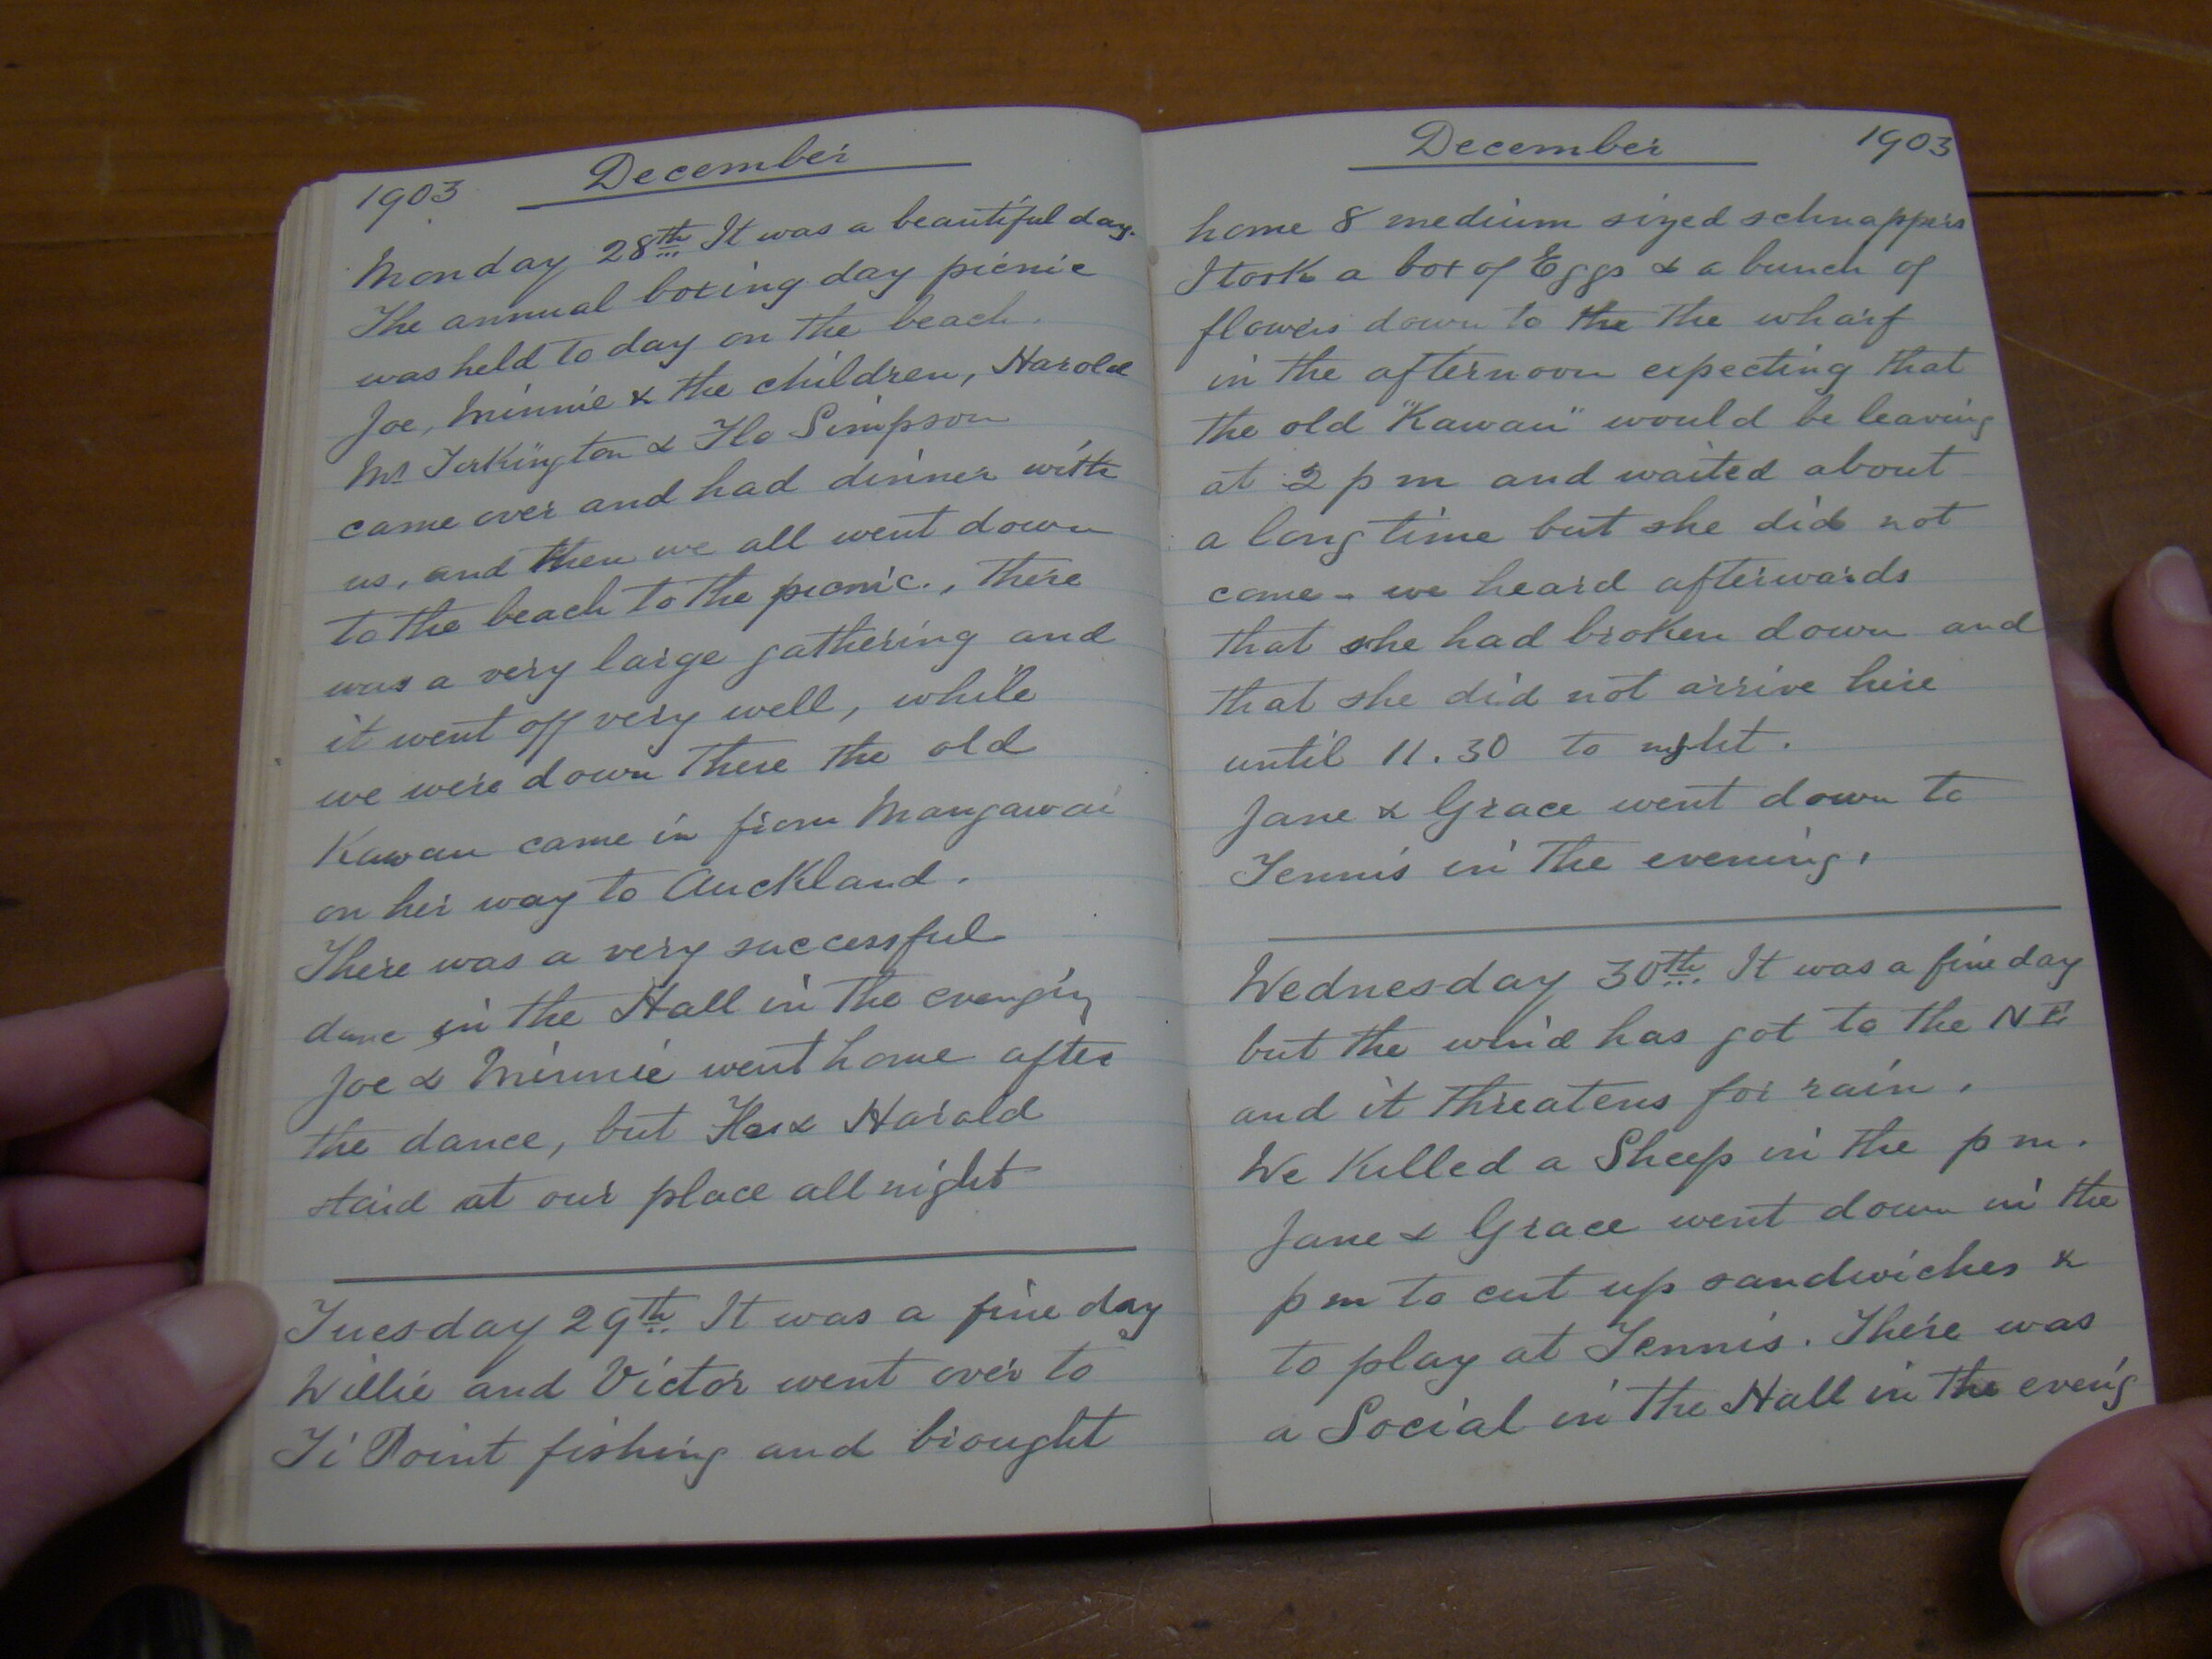 1903 December
Monday 28th It was a beautiful day.
The annual boxing day picnic
was held to day on the beach.
Joe, Minnie & the children, Harold
Mr Torkington & Flo Simpson
came over and had dinner with
us, and then we all went down
to the beach to the picnic., there
was a very large gathering and
it went off very well, while
we were down there the old
Kawau came in from Mangawai
on her way to Auckland.
There was a very successful
in the Hall in the
Joe & Minnie went home after
the dance, but Flo & Harold
staid at our place all night
Tuesday 29th It was a fine day
Willie and Victor went over to
Ti Point fishing and brought
December 1903
home 8 medium sized schnappers
I took a box of Eggs & a bunch of
flowers down to the the wharf
in the afternoon expecting that
the old "Kawau" would be leaving
at 2 p m and waited about
a long time but she did not
come - we heard afterwards
that she had broken down and
that she did not arrive here
until 11.30 to night.
Jane & Grace went down to
Tennis in the evening.
Wednesday 30th It was a fine day
but the wind has got to the N E
and it threatens for rain.
We Killed a Sheep in the p m.
Jane & Grace went down in the
p m to cut up sandwiches &
to play at Tennis. There was
a Social in the Hall in the even'g